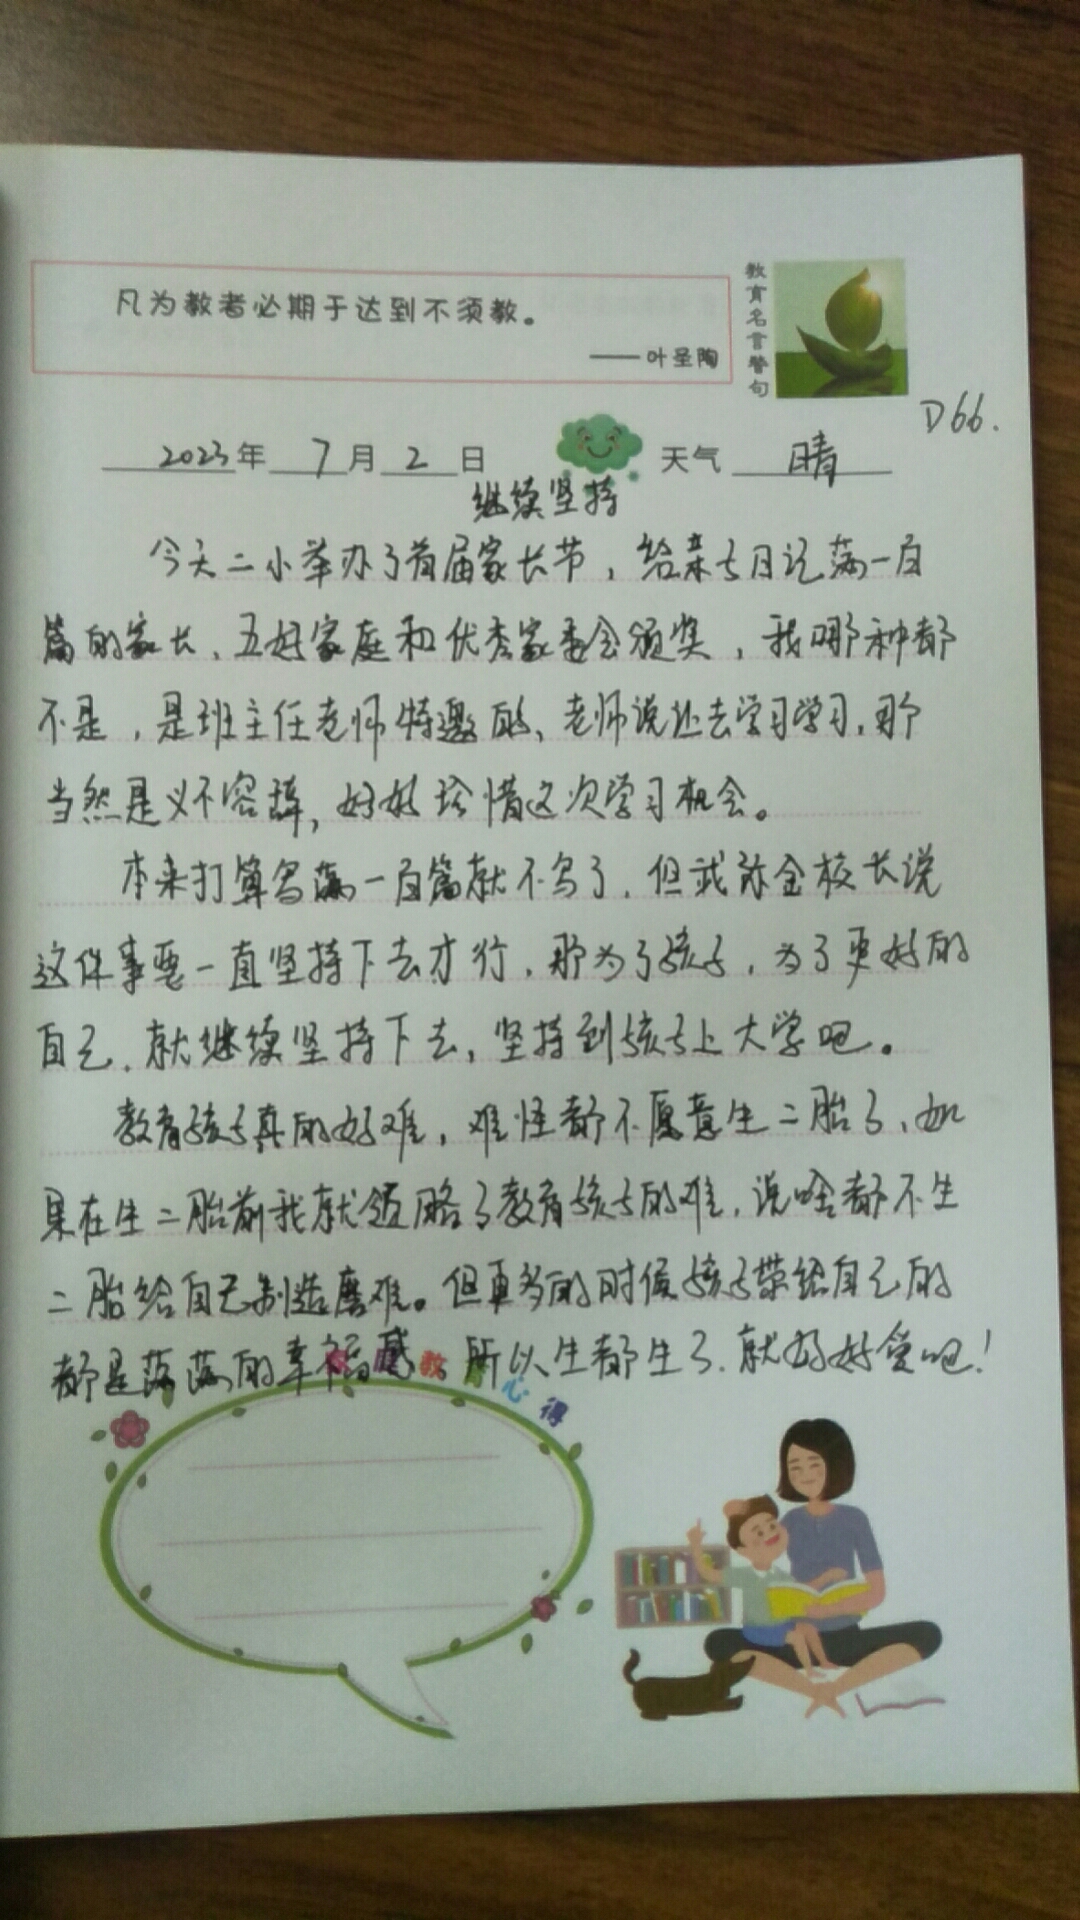 凡为教者必期于达到不须教。
——叶圣陶
教育名言警句
D66.
2023年 7月 2日 天气 晴
继续坚持
今天二小举办了首届家长节，给亲子日记满一百
篇的家长、五好家庭和优秀家委会颁奖，我哪种都
不是，是班主任老师特邀的、老师说让去学习学习，那
当然是义不容辞，好好珍惜这次学习机会。
本来打算写满一百篇就不写了，但武 金校长说
这件事要一直坚持下去才行，那为了孩子，为了更好的
自己，就继续坚持下去，坚持到孩子上大学吧。
教育孩子真的好难，难怪都不愿意生二胎了、如
果在生二胎前我就领略了教育孩子的难，说啥都不生
二胎给自己制造磨难。但更多的时候孩子带给自己的
都是满满的幸福感 所以生都生了，就好好爱吧！
教育心得